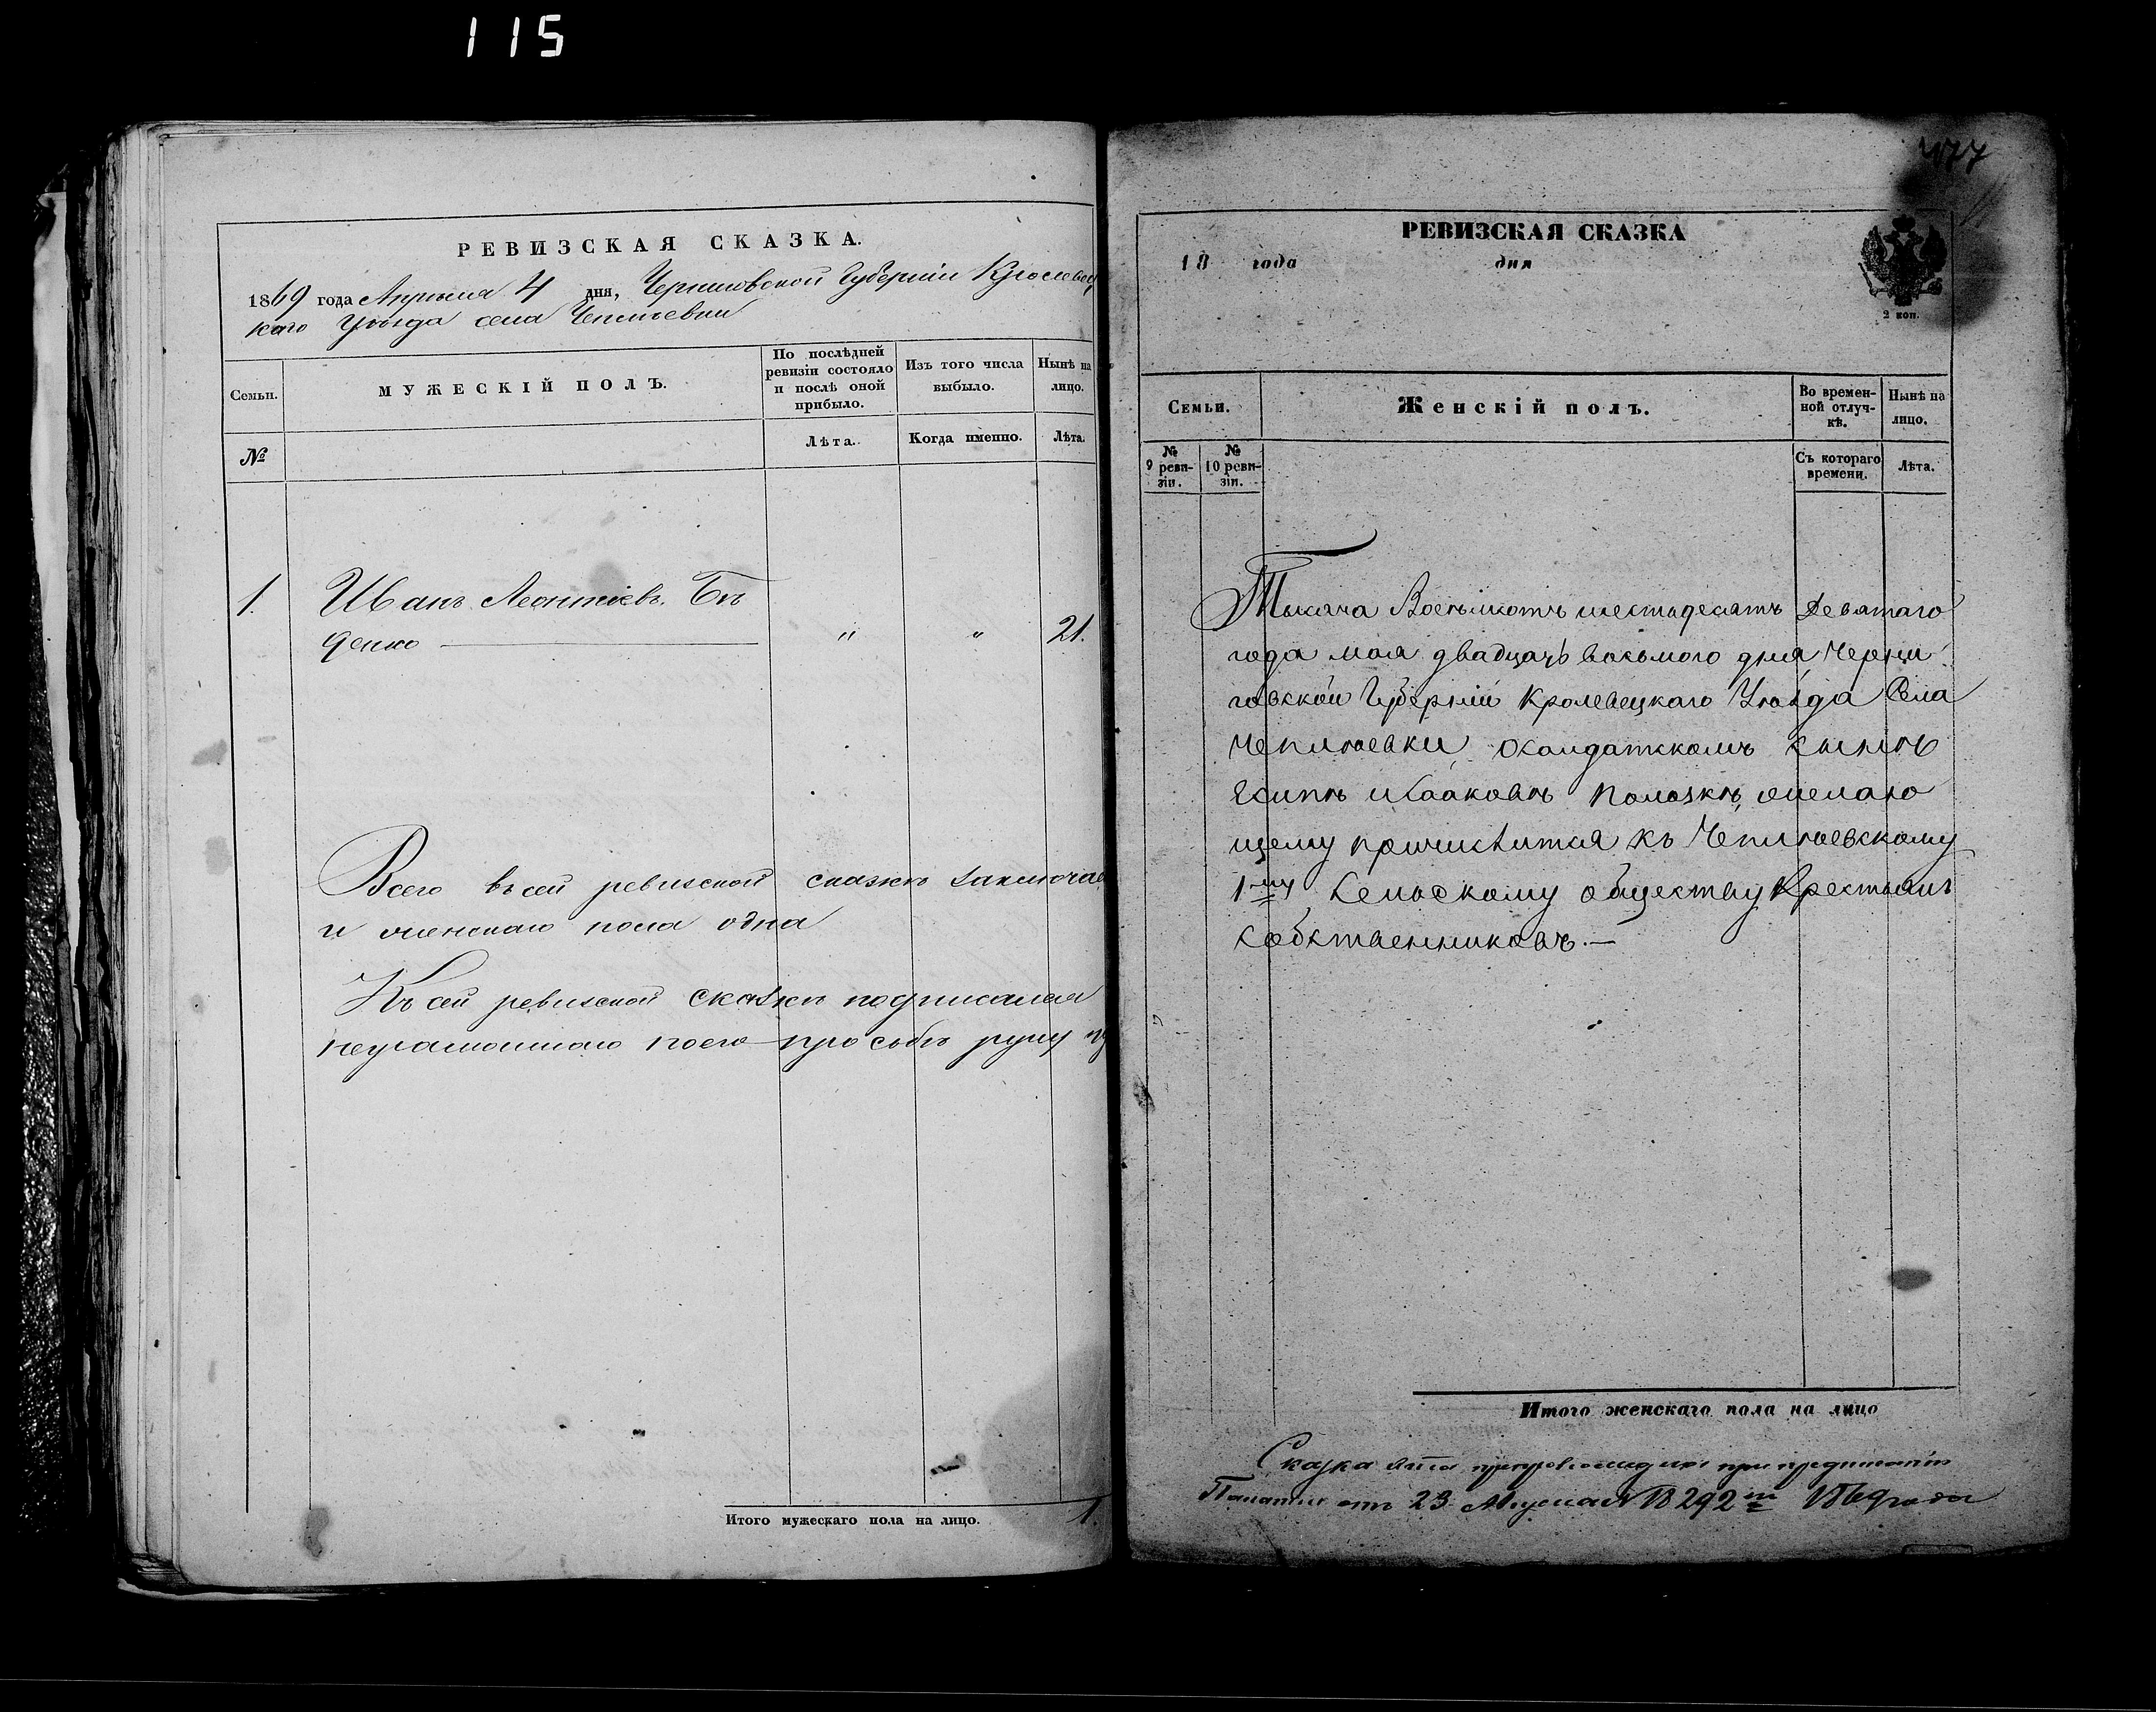 115
РЕВИЗСКАЯ СКАЗКА.
1869 года Апреля 4 дня, Черниговской Губерніи Кролевец
каго Уѣзда села Чеплѣевки
Семьи.
МУЖЕСКІЙ ПОЛЪ.
По послѣдней ревизіи состояло и послѣ оной прибыло.
Изъ того числа выбыло.
Нынѣ на лицо.
№
Лѣта.
Когда именно.
Лѣта.
1. Иванъ Леонтіевъ Бѣ
денко " " 21.
Всего въ сей ревизской сказкѣ заключае
и женскаго пола одна
Къ сей ревизской сказкѣ подписался
неграмотнаго по его прозьбѣ руку
Итого мужескаго пола на лицо. 1.
477
РЕВИЗСКАЯ СКАЗКА
18 года дня
2 коп.
Семьи.
Женскій полъ.
Во времен-
ной отлуч-
кѣ.
Нынѣ на
лицо.
№
9 реви-
зіи.
№
10 реви-
зіи.
Съ котораго
времени.
Лѣта.
Тысяча Восѣмсотъ шестьдесятъ девятаго
года мая двадцать восьмого дня Черни
говской Губерніи Кролевецкаго Уѣзда Села
Чеплѣевки, Солдатскомъ сынѣ
Есипѣ Исааковѣ желаю
щему причислится къ Чеплѣевскому
1му Сельскому обществу Крестьянъ
Собственниковъ.—
Итого женскаго пола на лицо
Сказка эта препровождена при предписаніи
Палаты отъ 23 Августа 1869 года